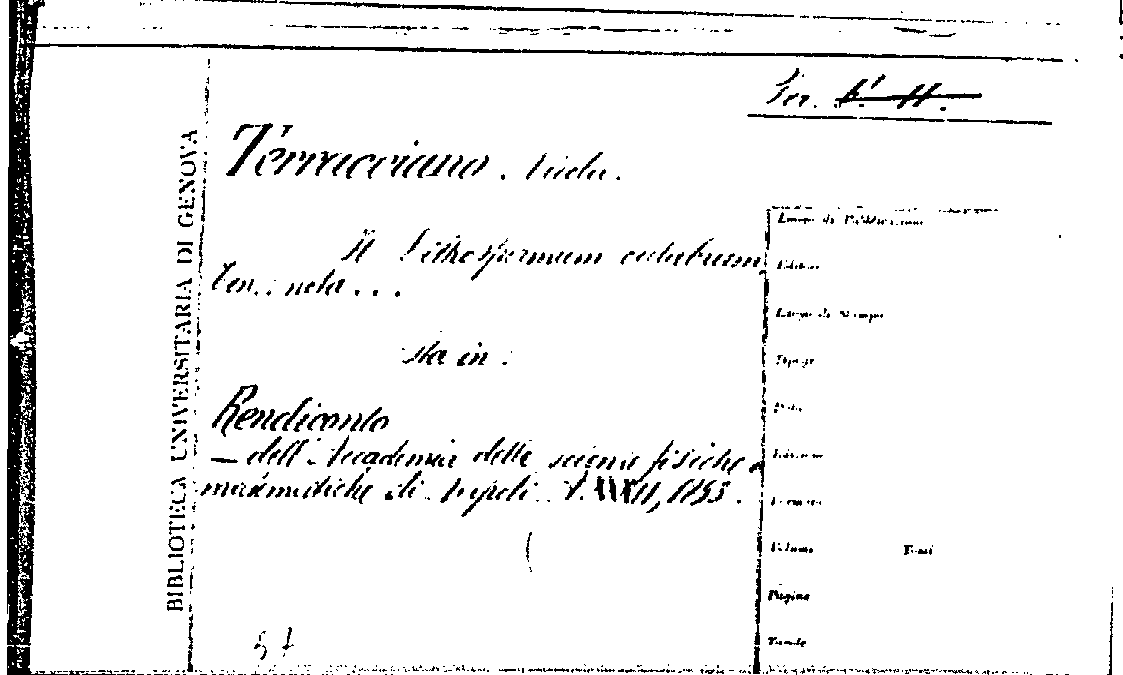 Ser.
BIBLIOTECA UNIVERSITARIA DI GENOVA
Terracciano.
Il Lithospermum calabrum
Ten.: nota...
sta in:
Rendiconto
— dell'Accademia delle scienze fisiche e
matematiche di Napoli.
Luogo di Pubblicazione
Editore
Luogo di Stampa
Tipogr
Data
Edizione
Formato
Volume Tomi
Pagine
Tavole